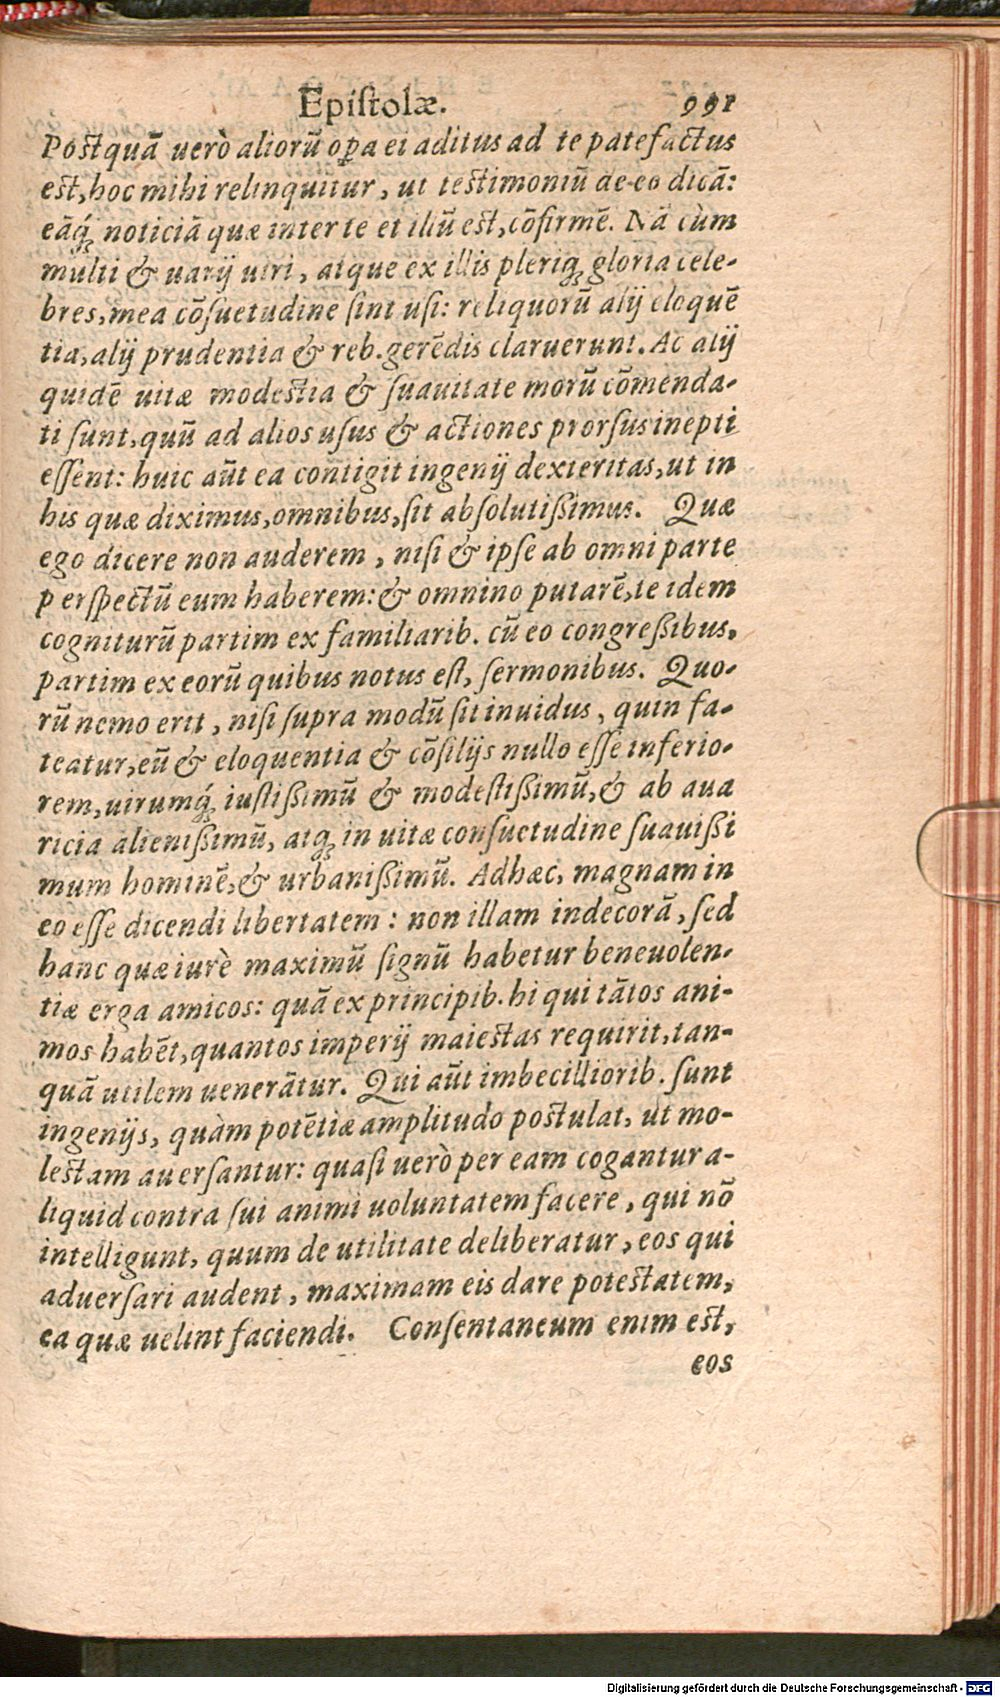 Epiſtolæ. 991
Postquã uerò aliorũ oꝑa et aditus ad te patefactus
est, hoc mihi relinquitur, ut testimoniũ de eo dicã:
eãq́ꝫ noticiã quæ inter te et illũ est, cõfirmẽ. Nã cùm
multi & uarij uiri, atque ex illis pleriqꝫ gloria cele-
bres, mea cõſuetudine ſint uſi: reliquorũ alij eloquẽ
tia, alij prudentia & reb. gerẽdis claruerunt. Ac alij
quidẽ uitæ modestia & ſuauitate morũ cõmenda-
ti ſunt, quũ ad alios uſus & actiones prorſus inepti
eſſent: huic aũt ea contigit ingenij dexteritas, ut in
his quæ diximus, omnibus, ſit abſolutißimus. Quæ
ego dicere non auderem, niſi & ipſe ab omni parte
perſpectũ eum haberem: & omnino putarẽ, te idem
cogniturũ partim ex familiarib. cũ eo congreßibus,
partim ex eorũ quibus notus eſt, ſermonibus. Quo-
rũ nemo erit, niſi ſupra modũ ſit inuidus, quin fa-
teatur, eũ & eloquentia & cõſilijs nullo eſſe inferio-
rem, uirumq́ꝫ iuſtißimũ & modeſtißimũ, & ab aua
ricia alienißimũ, atqꝫ in uitæ conſuetudine ſuauißi
mum hominẽ, & urbanißimũ. Adhæc, magnam in
eo eſſe dicendi libertatem: non illam indecorã, ſed
hanc quæ iurè maximũ ſignũ habetur beneuolen-
tiæ erga amicos: quã ex principib. hi qui tãtos ani-
mos habẽt, quantos imperij maiestas requirit, tan-
quã utilem uenerãtur. Qui aũt imbecilliorib. ſunt
ingenijs, quàm potẽtiæ amplitudo postulat, ut mo-
lestam auerſantur: quaſi uerò per eam cogantur a-
liquid contra ſui animi uoluntatem facere, qui nõ
intelligunt, quum de utilitate deliberatur, eos qui
aduerſari audent, maximam eis dare potestatem,
ea quæ uelint faciendi. Conſentaneum enim est,
eos
Digitalisierung gefördert durch die Deutsche Forschungsgemeinschaft - DFG